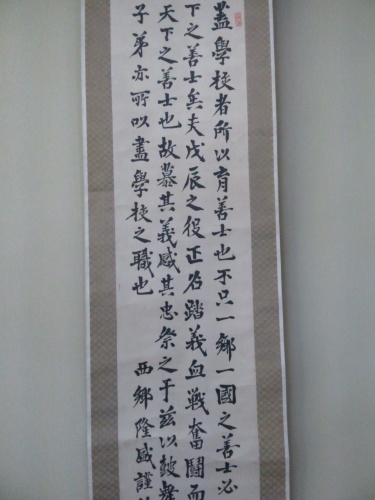 蓋學校者所以育善士也不只一鄉一國之善士必
下之善士矣夫戊辰之役正名踏義血戰奮鬪而
天下之善士也故慕其義感其忠祭之于茲以鼓舞
子弟亦所以盡學校之職也
西鄉隆盛謹